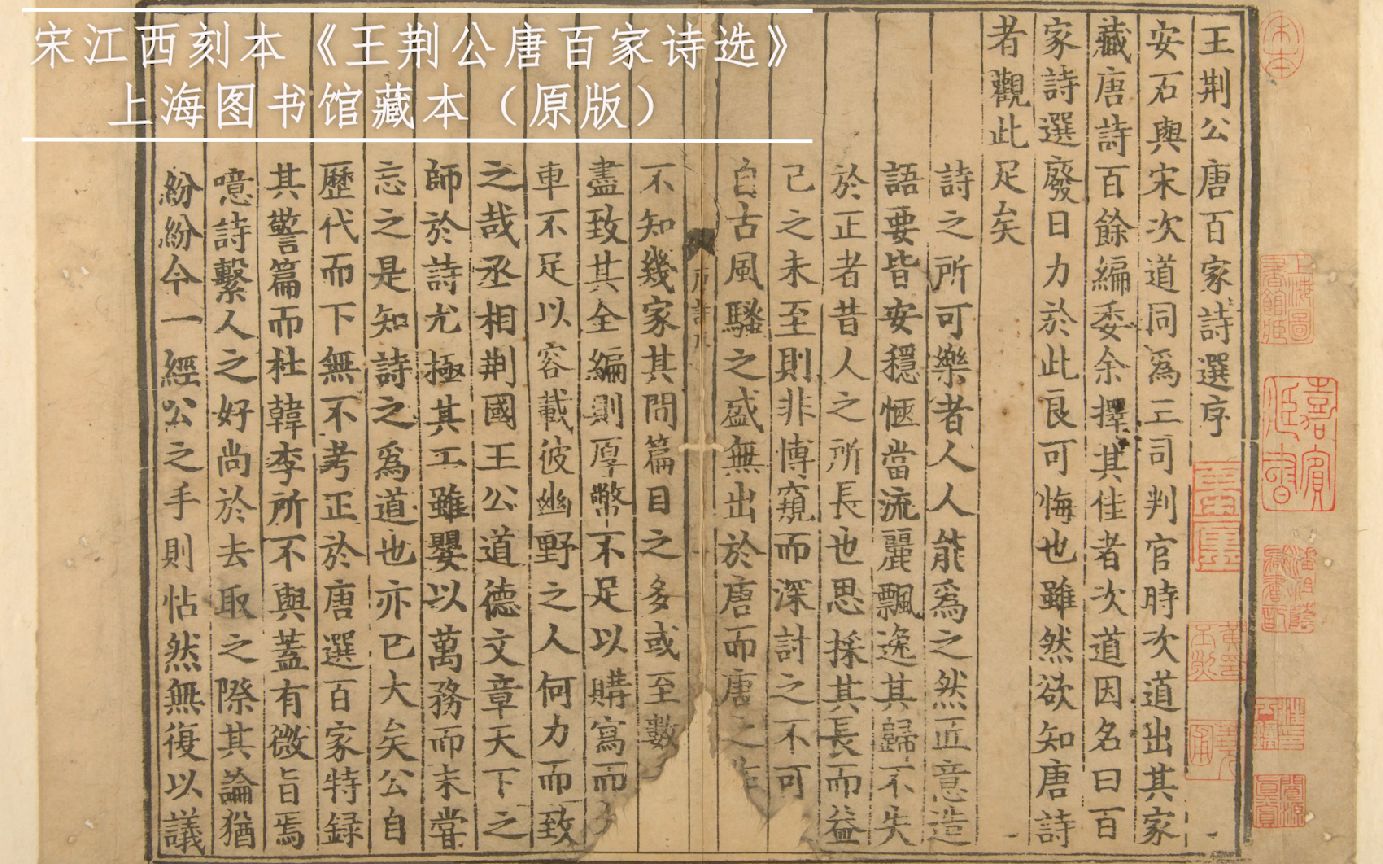 宋江西刻本《王荆公唐百家诗选》
上海图书馆藏本（原版）
王荆公唐百家詩選序
安石與宋次道同爲三司判官時次道出其家
藏唐詩百餘編委余擇其佳者次道因名曰百
家詩選廢日力於此良可悔也雖然欲知唐詩
者觀此足矣
詩之所可樂者人人能爲之然匠意造
語要皆安穩愜當流麗飄逸其歸不失
於正者昔人之所長也思採其長而益
己之未至則非博窺而深討之不可
自古風騷之盛無出於唐而唐之作
不知幾家其間篇目之多或至數
盡致其全編則厚幣不足以購寫而
車不足以容載彼幽野之人何力而致
之哉丞相荆國王公道德文章天下之
師於詩尤極其工雖嬰以萬務而未嘗
忘之是知詩之爲道也亦已大矣公自
歷代而下無不考正於唐選百家特録
其警篇而杜韓李所不與蓋有微旨焉
噫詩繫人之好尚於去取之際其論猶
紛紛今一經公之手則帖然無復以議
唐詩
宋本
上海圖書館藏